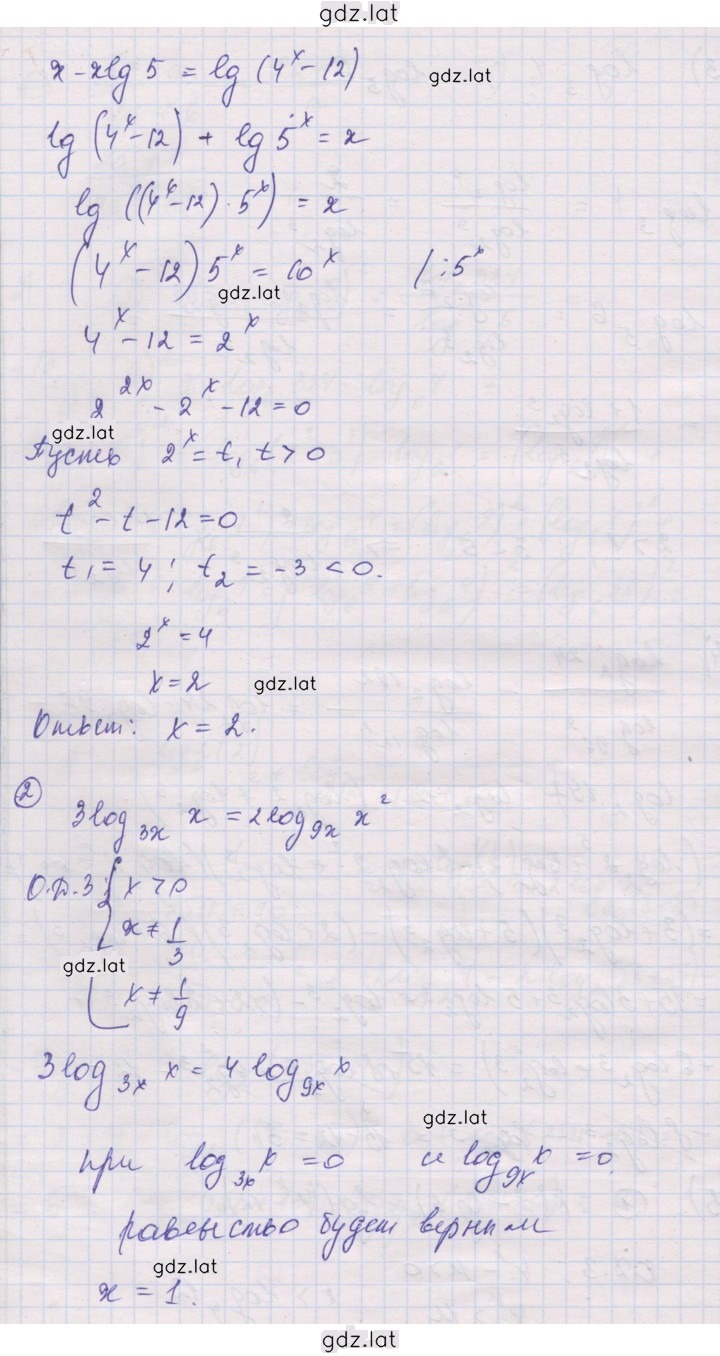 gdz.lat
x - xlg 5 = lg (4^x - 12)
gdz.lat
lg (4^x - 12) + lg 5^x = x
lg ((4^x - 12) · 5^x) = x
(4^x - 12) 5^x = 10^x  / : 5^x
gdz.lat
4^x - 12 = 2^x
2^2x - 2^x - 12 = 0
gdz.lat
Пусть 2^x = t, t > 0
t^2 - t - 12 = 0
t₁ = 4 ; t₂ = -3 < 0.
2^x = 4
x = 2
gdz.lat
Ответ: x = 2.
② 3log₃ₓ x = 2log₉ₓ x²
О.Д.З. { x > 0
x ≠ 1/3
gdz.lat
x ≠ 1/9
3log₃ₓ x = 4 log₉ₓ x
gdz.lat
при log₃ₓ x = 0 и log₉ₓ x = 0
равенство будет верным
gdz.lat
x = 1.
gdz.lat